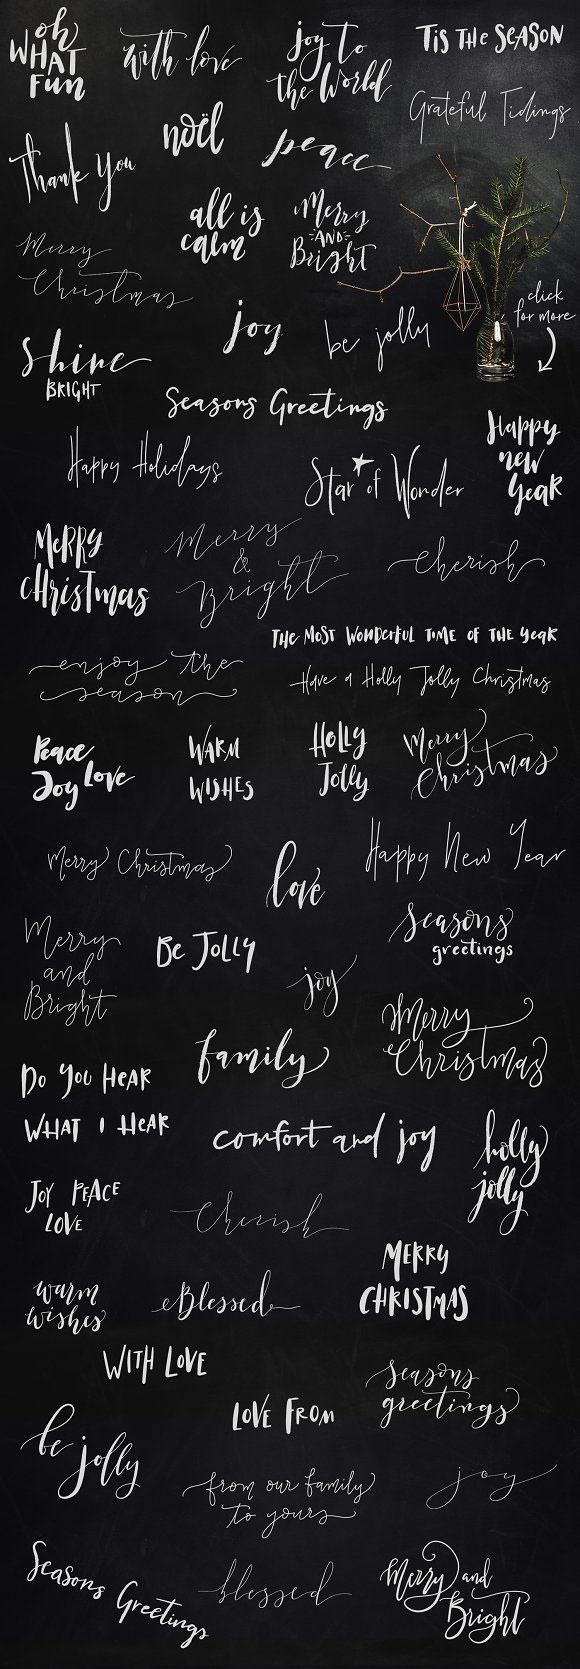 oh
WHAT
FUN
with love
joy to
the World
TIS THE SEASON
Grateful Tidings
noël
peace
Thank You
all is
calm
Merry
-AND-
Bright
Merry
Christmas
click
for more
joy
be jolly
Shine
BRIGHT
Seasons Greetings
Happy
new
Year
Happy Holidays
Star of Wonder
MERRY
CHRistmas
Merry
&
Bright
Cherish
THE MOST WONDERFUL TIME OF THE YEAR
enjoy the
season
Have a Holly Jolly Christmas
Peace
Joy Love
WARM
WISHES
HOLLY
Jolly
Merry
Christmas
Merry Christmas
love
Happy New Year
Merry
and
Bright
BE JOLLY
Seasons
greetings
joy
Merry
Christmas
family
DO YOU HEAR
WHAT I HEAR
comfort and joy
holly
jolly
JOY PEACE
LOVE
Cherish
MERRY
CHRISTMAS
warm
wishes
Blessed
WITH LOVE
Seasons
greetings
LOVE FROM
be
jolly
from our family
to yours
joy
Seasons Greetings
blessed
Merry and
Bright